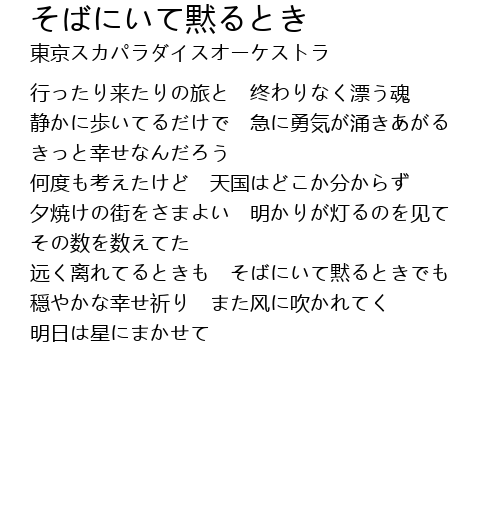 そばにいて黙るとき
東京スカパラダイスオーケストラ
行ったり来たりの旅と　终わりなく漂う魂
静かに歩いてるだけで　急に勇気が涌きあがる
きっと幸せなんだろう
何度も考えたけど　天国はどこか分からず
夕焼けの街をさまよい　明かりが灯るのを见て
その数を数えてた
远く离れてるときも　そばにいて黙るときでも
穏やかな幸せ祈り　また风に吹かれてく
明日は星にまかせて